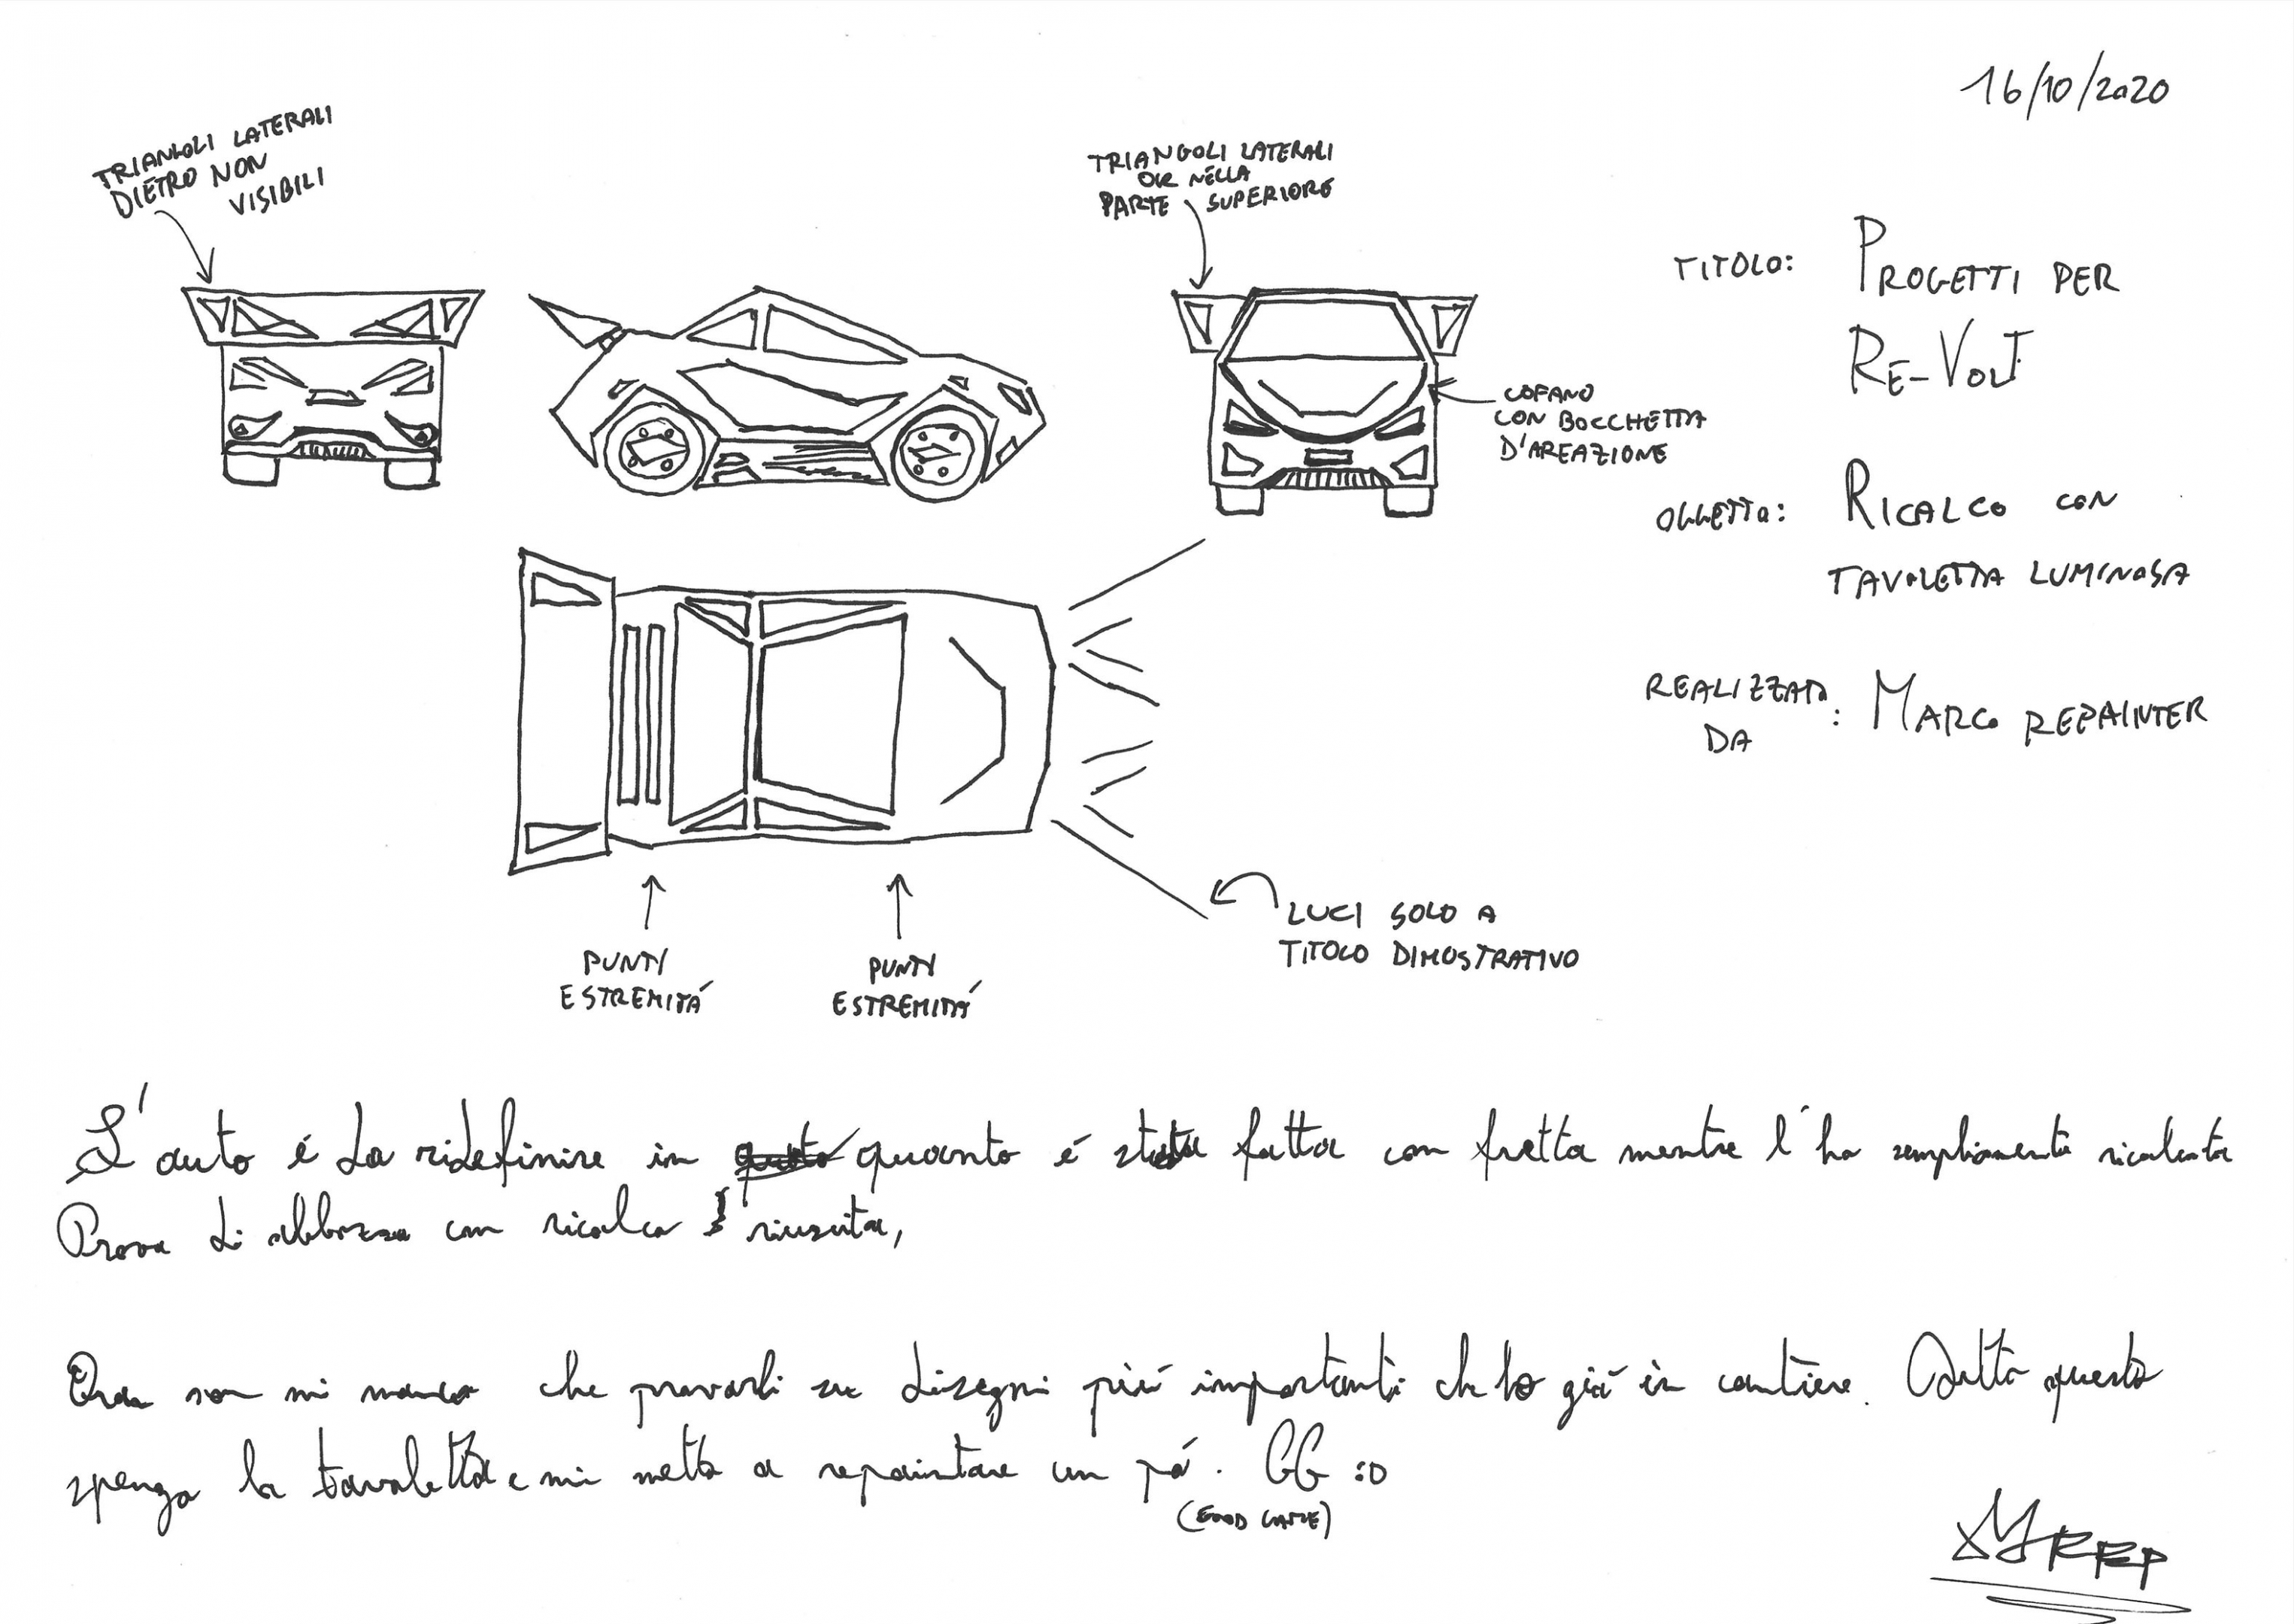 16/10/2020
TRIANGOLI LATERALI
DIETRO NON
VISIBILI
TRIANGOLI LATERALI
OK NELLA
PARTE SUPERIORE
TITOLO: PROGETTI PER
RE-VOLT
COFANO
CON BOCCHETTA
D'AREAZIONE
OGGETTO: RICALCO CON
TAVOLETTA LUMINOSA
REALIZZATO
DA : MARCO REPAINTER
LUCI SOLO A
TITOLO DIMOSTRATIVO
PUNTI
ESTREMITÁ
PUNTI
ESTREMITÁ
L'auto é da ridefinire in quanto é stata fatta con fretta mentre l'ho semplicemente ricalcata
Prova di abbozzo con ricalco riuscita,
Ora non mi manca che provarli su disegni piú importanti che ho giá in cantiere. Detto questo
spengo la tavoletta e mi metto a repaintare un pó. GG :D
(GOOD GAME)
MRREP